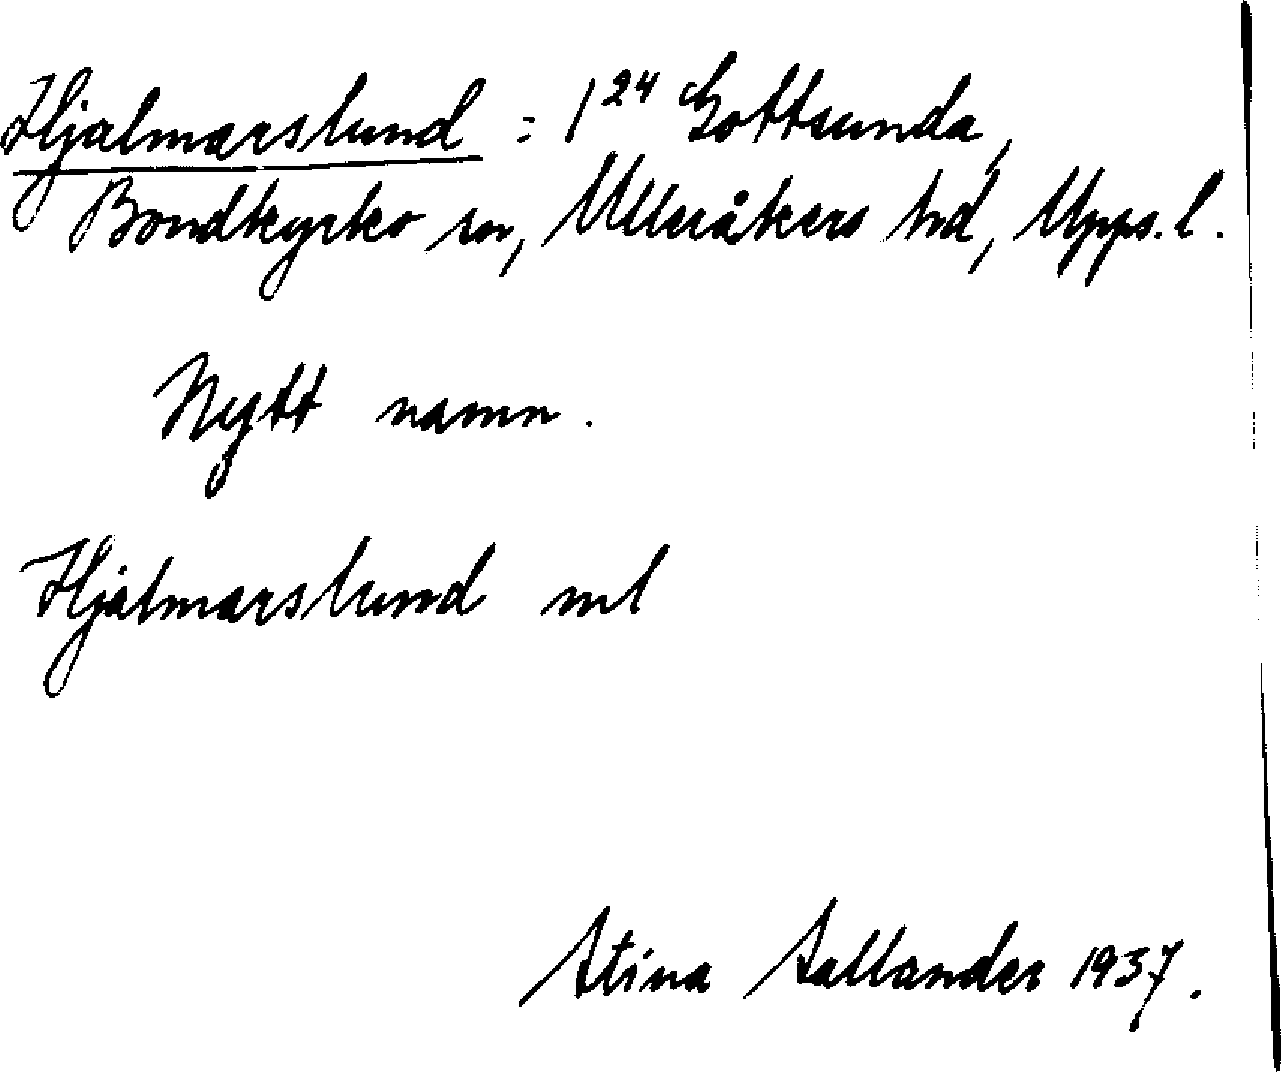 Hjalmarslund = 1²⁴ Gottsunda,
Bondkyrko sn, Ulleråkers hd, Upps. l.
Nytt namn.
Hjalmarslund ml
Stina Sallander 1937.